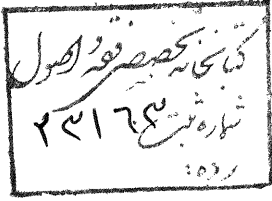 کتابخانه تخصصی فقه و اصول
شماره ثبت ۲۳۱۶۰۳
رده: